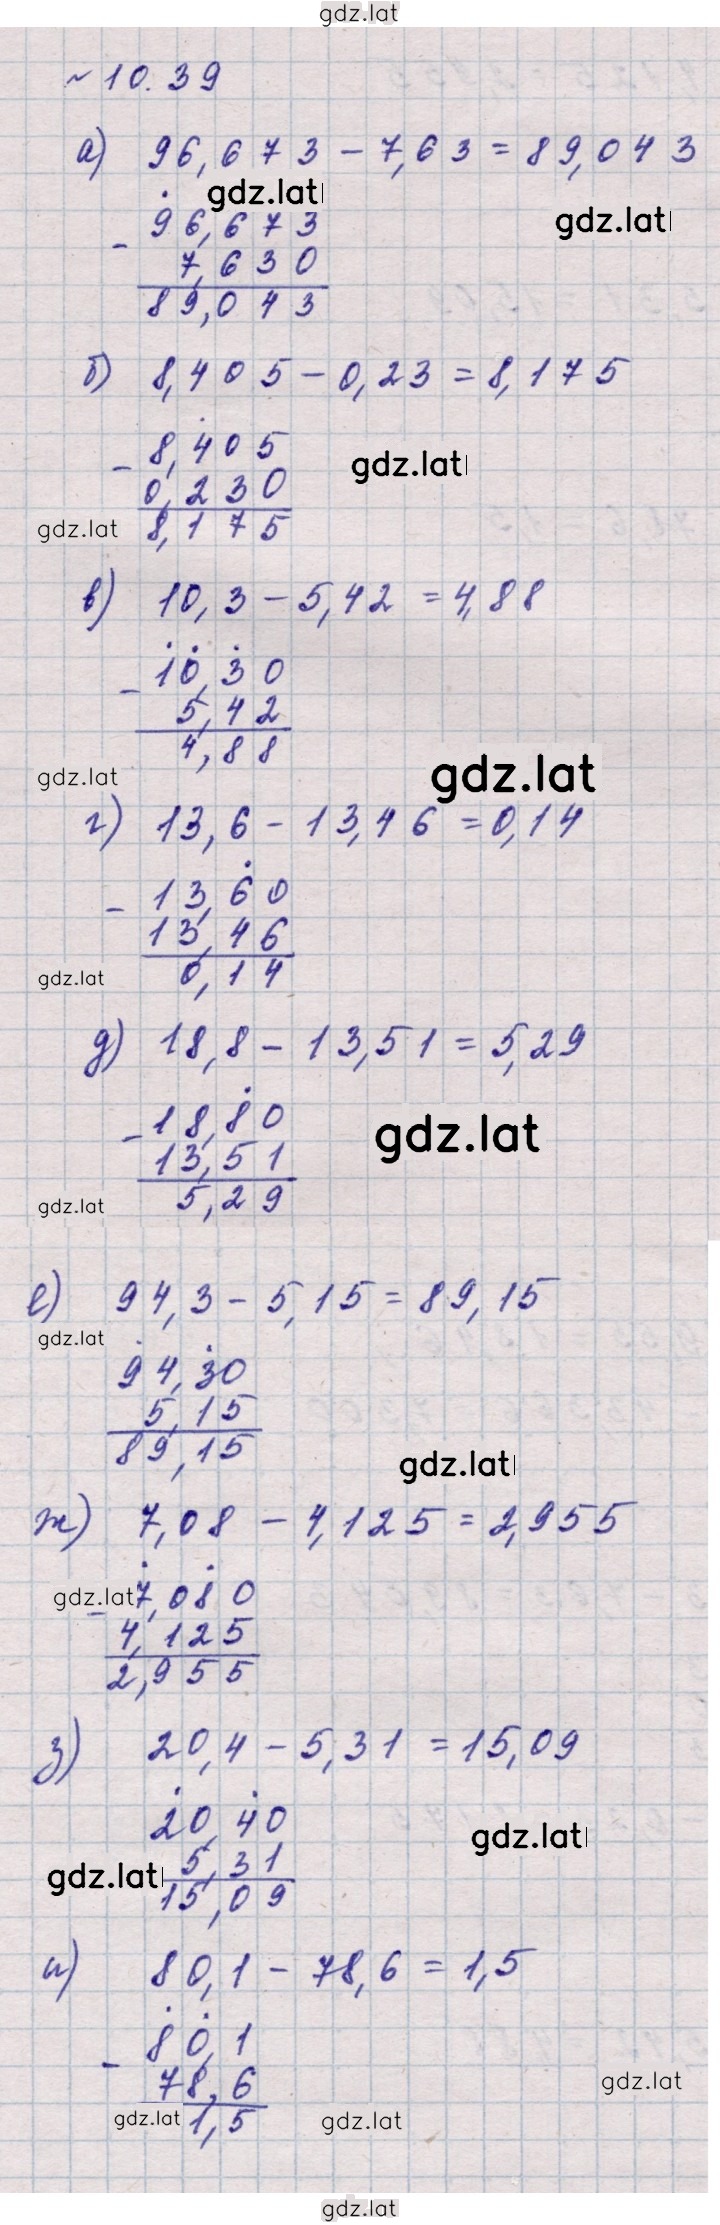 gdz.lat
~ 10.39
а) 96,673 - 7,63 = 89,043
gdz.lat
gdz.lat
- 96,673
7,630
89,043
б) 8,405 - 0,23 = 8,175
- 8,405
gdz.lat
0,230
gdz.lat
8,175
в) 10,3 - 5,42 = 4,88
- 10,30
5,42
4,88
gdz.lat
gdz.lat
г) 13,6 - 13,46 = 0,14
- 13,60
13,46
gdz.lat
0,14
д) 18,8 - 13,51 = 5,29
- 18,80
gdz.lat
13,51
gdz.lat
5,29
е) 94,3 - 5,15 = 89,15
gdz.lat
94,30
5,15
89,15
gdz.lat
ж) 7,08 - 4,125 = 2,955
gdz.lat
- 7,080
4,125
2,955
з) 20,4 - 5,31 = 15,09
20,40
gdz.lat
5,31
gdz.lat
15,09
и) 80,1 - 78,6 = 1,5
- 80,1
78,6
gdz.lat
1,5
gdz.lat
gdz.lat
gdz.lat